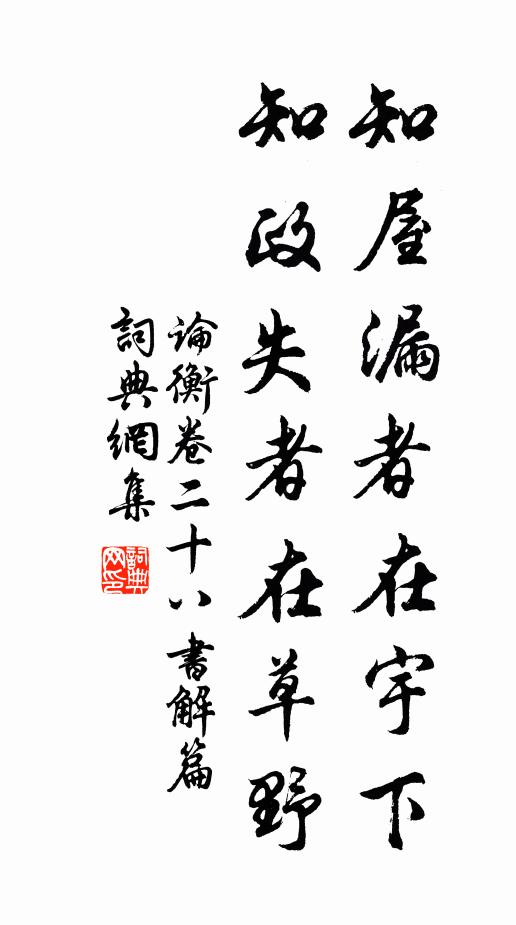 知屋漏者在宇下
知政失者在草野
论衡卷二十八 書解篇
詞典網集
詞典网印